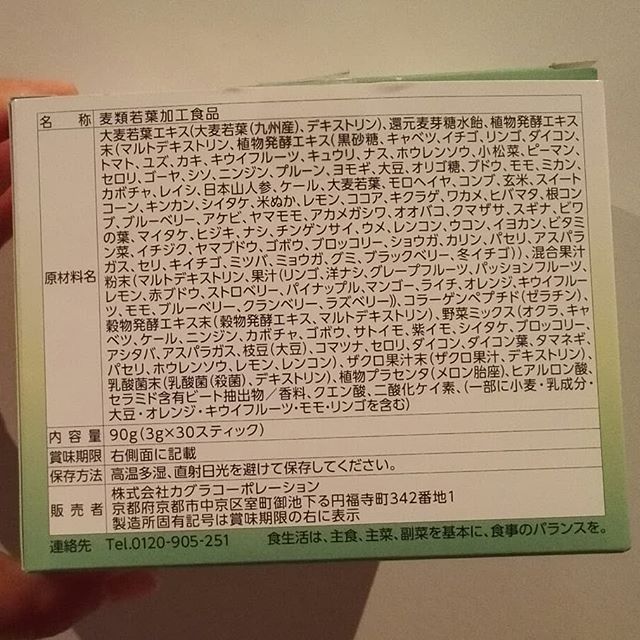 名称 麦類若葉加工食品
原材料名
大麦若葉エキス(大麦若葉(九州産)、デキストリン)、還元麦芽糖水飴、植物発酵エキス
末(マルトデキストリン、植物発酵エキス(黒砂糖、キャベツ、イチゴ、リンゴ、ダイコン、
トマト、ユズ、カキ、キウイフルーツ、キュウリ、ナス、ホウレンソウ、小松菜、ピーマン、
セロリ、ゴーヤ、シソ、ニンジン、プルーン、ヨモギ、大豆、オリゴ糖、ブドウ、モモ、ミカン、
カボチャ、レイシ、日本山人参、ケール、大麦若葉、モロヘイヤ、コンブ、玄米、スイート
コーン、キンカン、シイタケ、米ぬか、レモン、ココア、キクラゲ、ワカメ、ヒバマタ、根コン
ブ、ブルーベリー、アケビ、ヤマモモ、アカメガシワ、オオバコ、クマザサ、スギナ、ビワ
の葉、マイタケ、ヒジキ、ナシ、チンゲンサイ、ウメ、レンコン、ウコン、イヨカン、ビタミ
ン菜、イチジク、ヤマブドウ、ゴボウ、ブロッコリー、ショウガ、カリン、パセリ、アスパラ
ガス、セリ、キイチゴ、ミツバ、ミョウガ、グミ、ブラックベリー、冬イチゴ))、混合果汁
粉末(マルトデキストリン、果汁(リンゴ、洋ナシ、グレープフルーツ、パッションフルーツ、
レモン、赤ブドウ、ストロベリー、パイナップル、マンゴー、ライチ、オレンジ、キウイフルー
ツ、モモ、ブルーベリー、クランベリー、ラズベリー))、コラーゲンペプチド(ゼラチン)、
穀物発酵エキス末(穀物発酵エキス、マルトデキストリン)、野菜ミックス(オクラ、キャ
ベツ、ケール、ニンジン、カボチャ、ゴボウ、サトイモ、紫イモ、シイタケ、ブロッコリー、
アシタバ、アスパラガス、枝豆(大豆)、コマツナ、セロリ、ダイコン、ダイコン葉、タマネギ、
パセリ、ホウレンソウ、レモン、レンコン)、ザクロ果汁末(ザクロ果汁、デキストリン)、
乳酸菌末(乳酸菌(殺菌)、デキストリン)、植物プラセンタ(メロン胎座)、ヒアルロン酸、
セラミド含有ビート抽出物/香料、クエン酸、二酸化ケイ素、(一部に小麦・乳成分・
大豆・オレンジ・キウイフルーツ・モモ・リンゴを含む)
内容量 90g(3g×30スティック)
賞味期限 右側面に記載
保存方法 高温多湿、直射日光を避けて保存してください。
販売者
株式会社カグラコーポレーション
京都府京都市中京区室町御池下る円福寺町342番地1
製造所固有記号は賞味期限の右に表示
連絡先 Tel.0120-905-251 食生活は、主食、主菜、副菜を基本に、食事のバランスを。